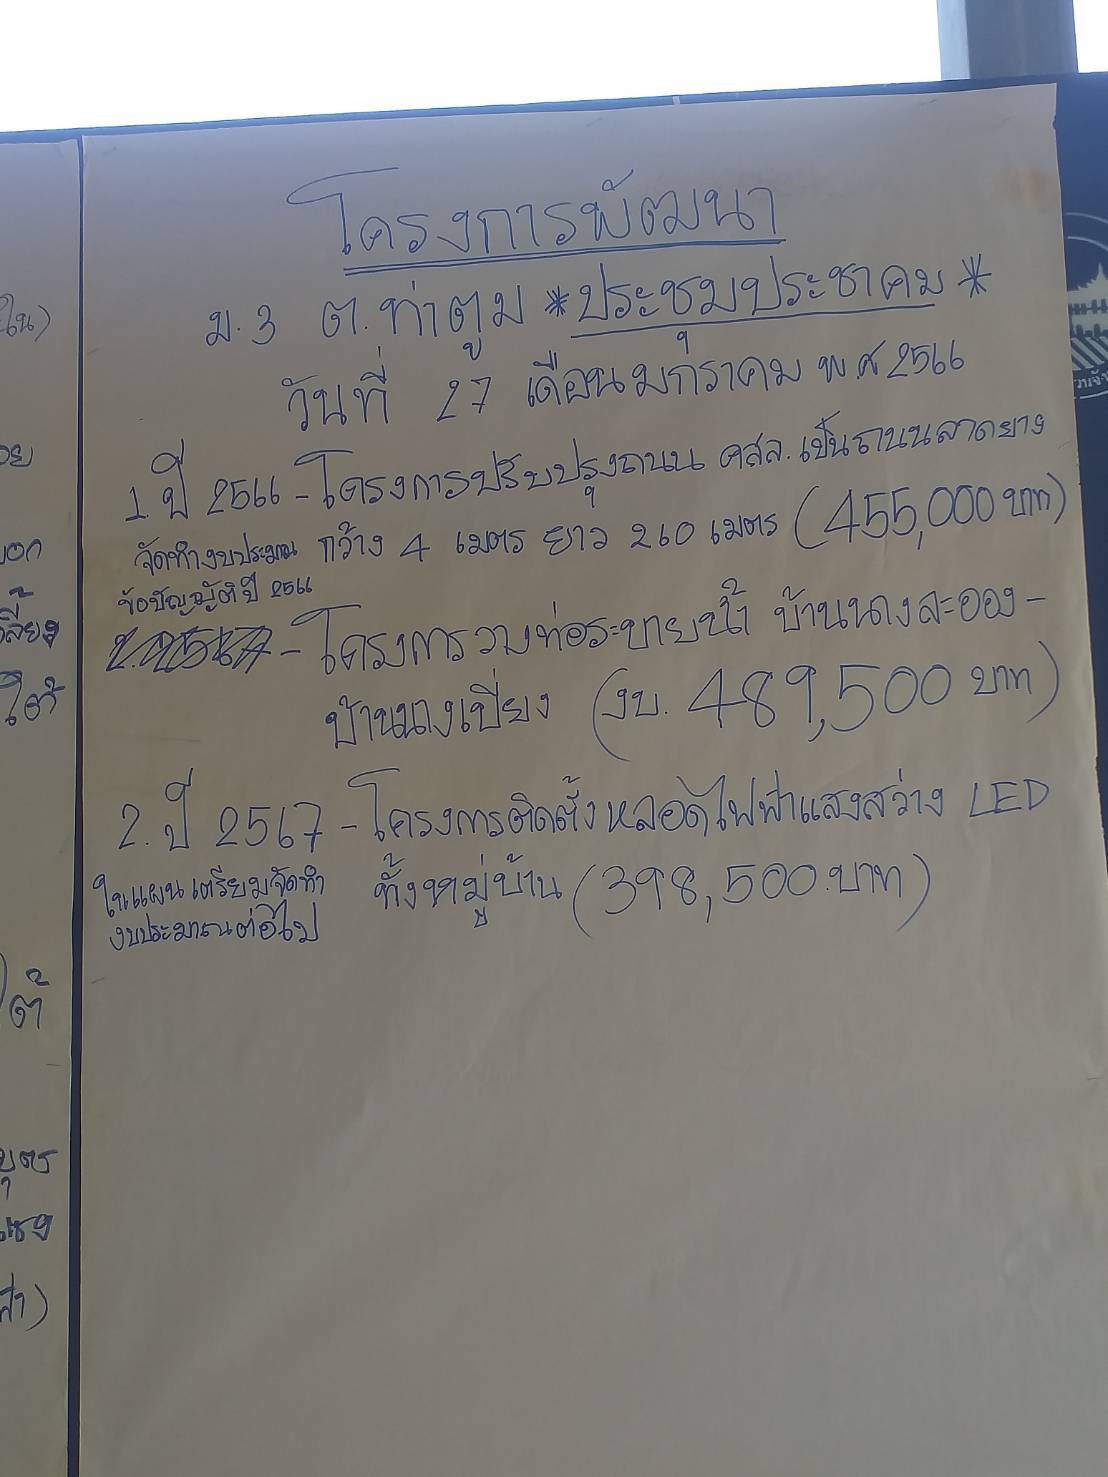 โครงการพัฒนา
ม.3 ต.ท่าตูม *ประชุมประชาคม*
วันที่ 27 เดือนมกราคม พ.ศ 2566
1. ปี 2566 - โครงการปรับปรุงถนน คสล. เป็นถนนลาดยาง
จัดทำงบประมาณ กว้าง 4 เมตร ยาว 260 เมตร (455,000 บาท)
ข้อบัญญัติปี 2566
- โครงการวางท่อระบายน้ำ บ้านนางละออง -
บ้านนางเปี่ยง (งบ. 489,500 บาท)
2. ปี 2567 - โครงการติดตั้งหลอดไฟฟ้าแสงสว่าง LED
ในแผน เตรียมจัดทำ ทั้งหมู่บ้าน (398,500.บาท)
งบประมาณต่อไป